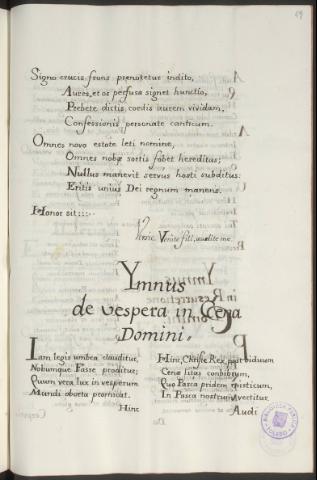 Signo crucis frons prenotetur indito,
Aures, et os perfusa signet hunctio,
Prebete dictis cordis aurem vividam,
Confessionis personate canticum.
Omnes novo estote leti nomine,
Omnes nobæ sortis fabet hereditas;
Nullus manevit servus hosti subditus:
Eritis unius Dei regnum manens.
Honor sit::::
Versic. Venite filii, audite me.
Ymnus
de vespera in Cena
Domini.
Iam legis umbra clauditur,
Nobumque Passe proditur;
Quum vera lux in vesperum
Mundi oborta prorricat.
Hinc
Hinc, Christe Rex, post biduum
Cenæ litas conbibium,
Quo Pasca pridem misticum,
In Pasca nostrum vectitur.
Audi